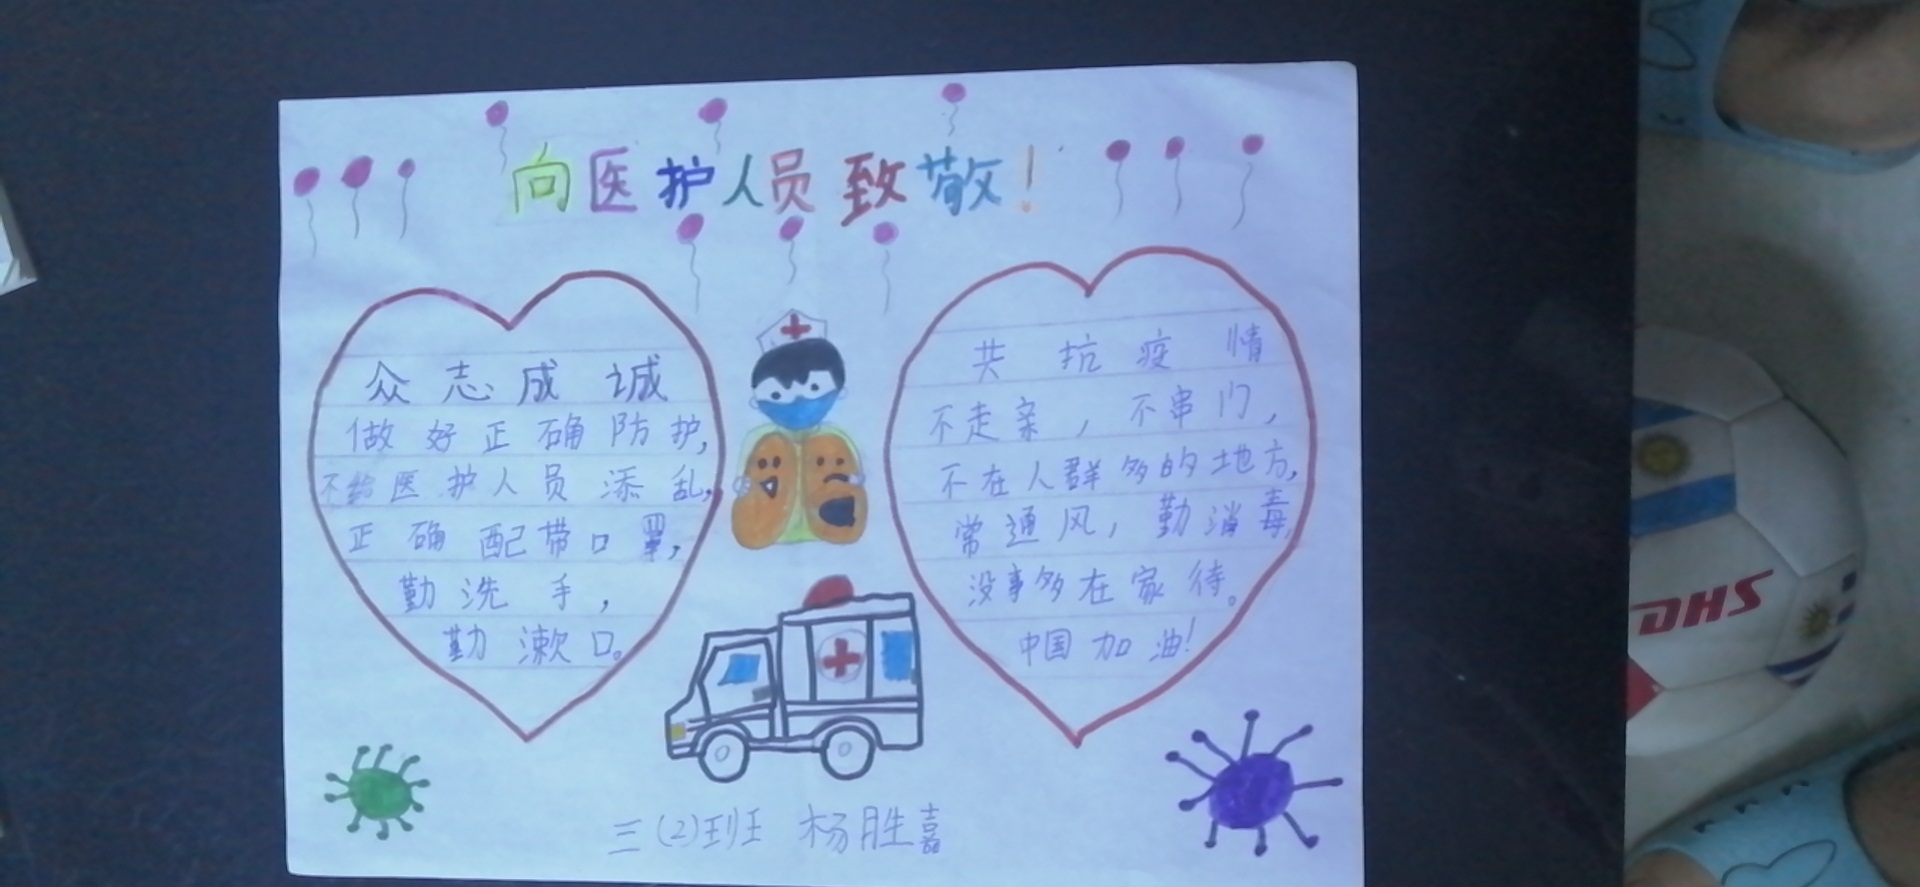 向医护人员致敬!
众志成诚
做好正确防护,
不给医护人员添乱,
正确配带口罩,
勤洗手,
勤漱口。
共抗疫情
不走亲,不串门,
不在人群多的地方,
常通风,勤消毒,
没事多在家待。
中国加油!
三(2)班 杨胜嘉
DHS